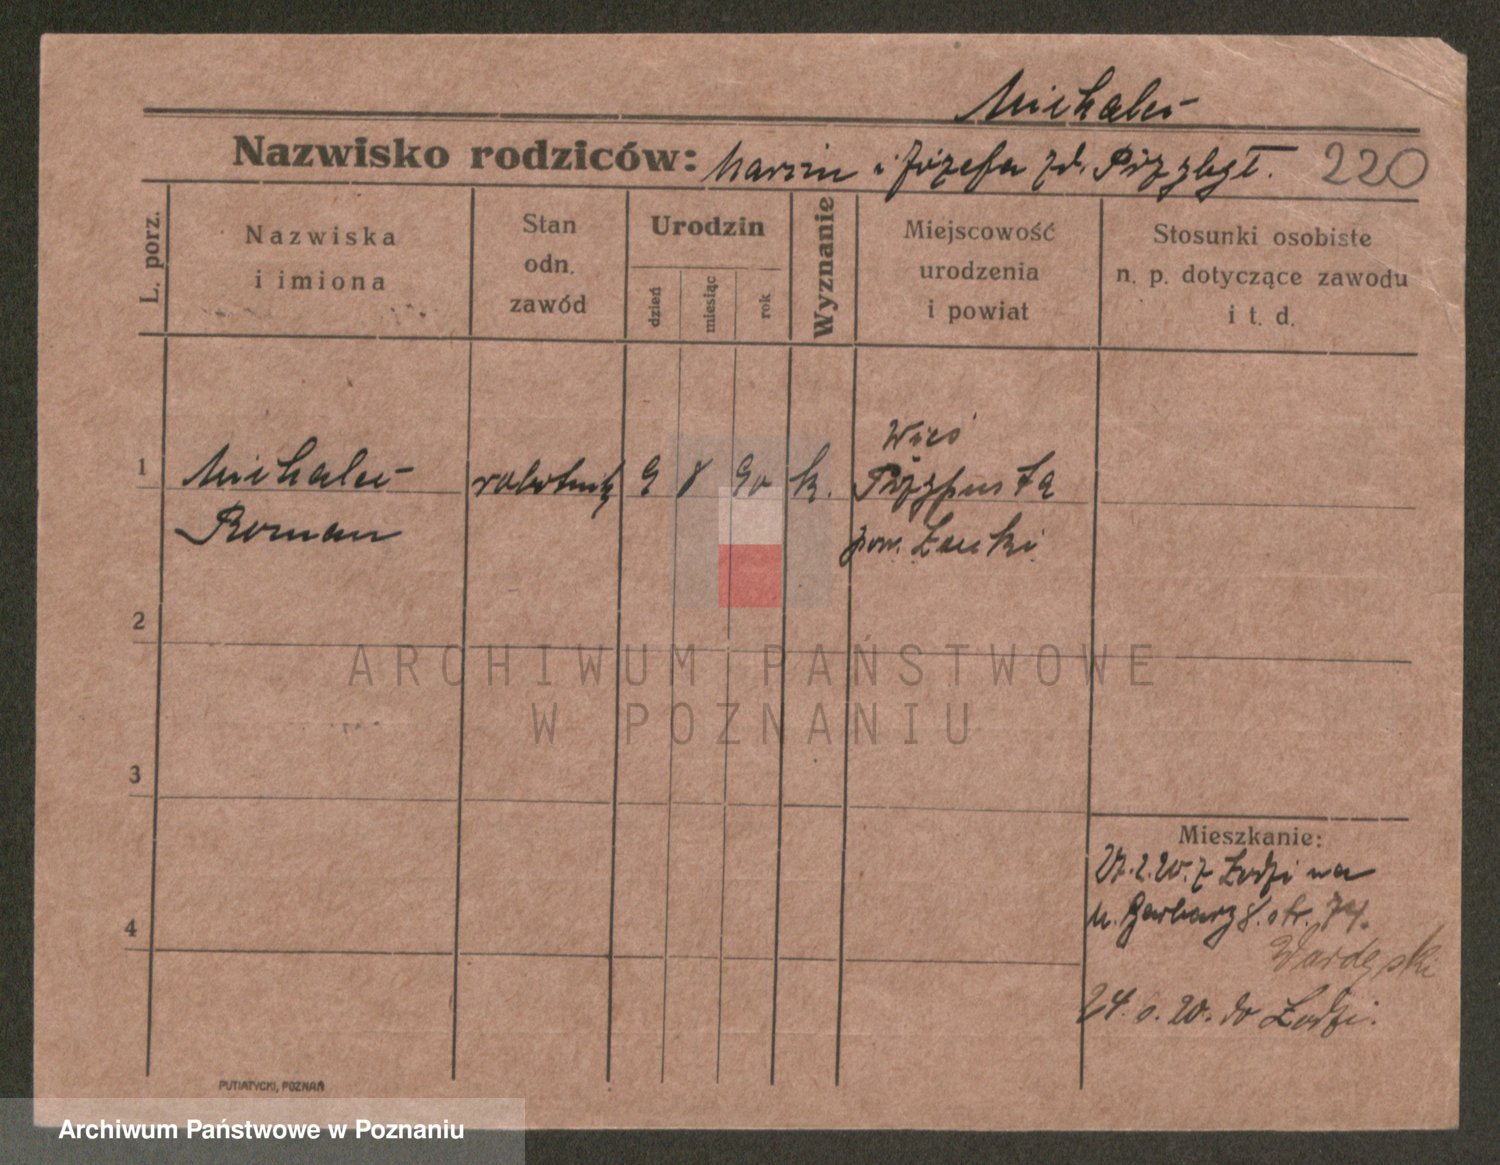 Michalci
Nazwisko rodziców: Marcin i Józefa zd. 220
L. porz.
Nazwiska i imiona
Stan odn. zawód
Urodzin
dzień
miesiąc
rok
Wyznanie
Miejscowość urodzenia i powiat
Stosunki osobiste n. p. dotyczące zawodu i t. d.
Wieś
1 Michalci robotnik 9 8 90 k.
Roman pow. Łaski
2
3
4
Mieszkanie:
27.2.20. z Łodzi na
u. Garbary 8. str. 74.
24. 20. do Łodzi.
PUTIATYCKI, POZNAŃ
ARCHIWUM PAŃSTWOWE
W POZNANIU
Archiwum Państwowe w Poznaniu